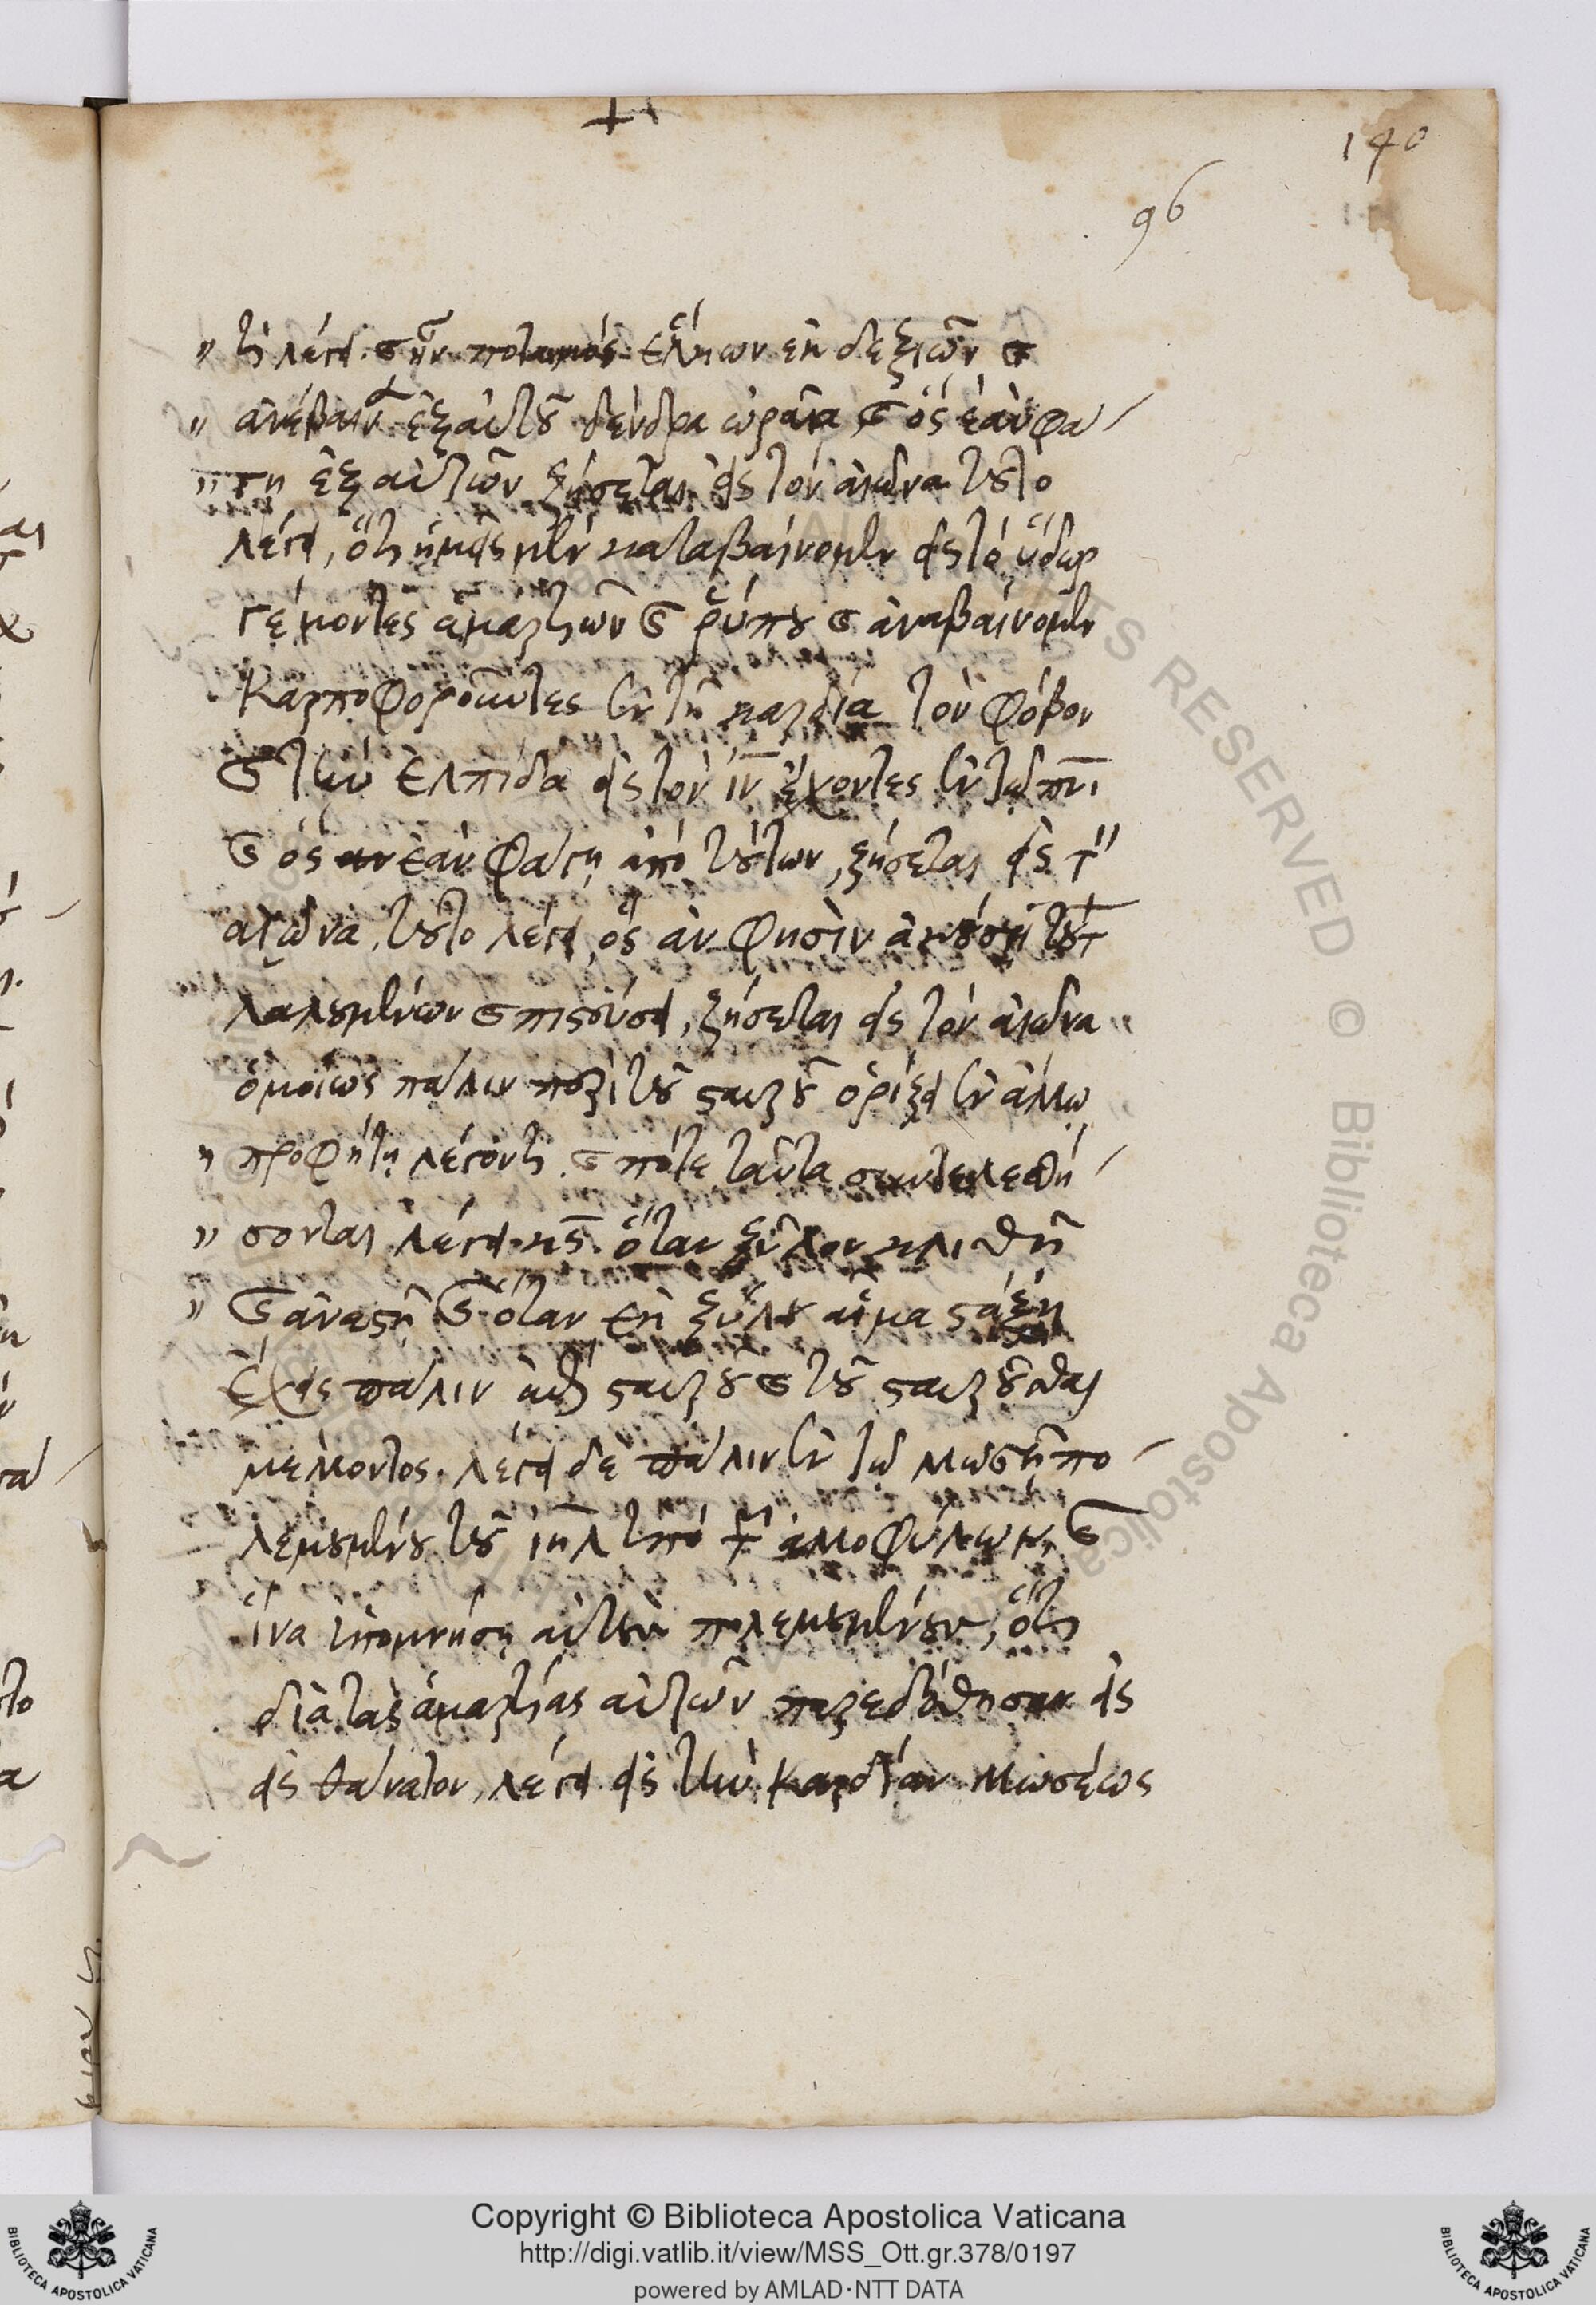 140
96
τί λέγει· καὶ ἦν ποταμὸς ἕλκων ἐκ δεξιῶν καὶ
ἀνέβαινεν ἐξ αὐτοῦ δένδρα ὡραῖα καὶ ὃς ἐὰν φά
γη ἐξ αὐτῶν ζήσεται εἰς τὸν αἰῶνα τοῦτο
λέγει, ὅτι ἡμεῖς μὲν καταβαίνομεν εἰς τὸ ὕδωρ
γέμοντες ἁμαρτιῶν καὶ ῥύπου καὶ ἀναβαίνομεν
καρποφοροῦντες ἐν τῇ καρδίᾳ τὸν φόβον
καὶ τὴν ἐλπίδα εἰς τὸν ἰν ἔχοντες ἐν τῷ πνι
καὶ ὃς ἐὰν φάγῃ ἀπὸ τούτων, ζήσεται εἰς τὸν
αἰῶνα, τοῦτο λέγει, ὃς ἂν φησὶν ἀκούσῃ τούτων
λαλουμένων καὶ πιστεύσει, ζήσεται εἰς τὸν αἰῶνα
ὁμοίως πάλιν περὶ τοῦ σταυροῦ ὁρίζει ἐν ἄλλῳ
προφήτῃ λέγοντι καὶ πότε ταῦτα συντελεσθή
σονται λέγει κς ὅταν ξύλον κλιθῇ
καὶ ἀναστῇ καὶ ὅταν ἐκ ξύλου αἷμα στάξῃ
ἔχεις πάλιν περὶ σταυροῦ καὶ τοῦ σταυροῦσθαι
μέλλοντος. λέγει δὲ πάλιν ἐν τῷ μωσῇ πο
λεμουμένου τοῦ ιηλ ὑπὸ τῶν ἀλλοφύλων, καὶ
ἵνα ὑπομνήσῃ αὐτοὺς πολεμουμένους, ὅτι
διὰ τὰς ἁμαρτίας αὐτῶν παρεδόθησαν εἰς
εἰς θάνατον, λέγει εἰς τὴν καρδίαν μωσέως
Copyright © Biblioteca Apostolica Vaticana
http://digi.vatlib.it/view/MSS_Ott.gr.378/0197
powered by AMLAD·NTT DATA